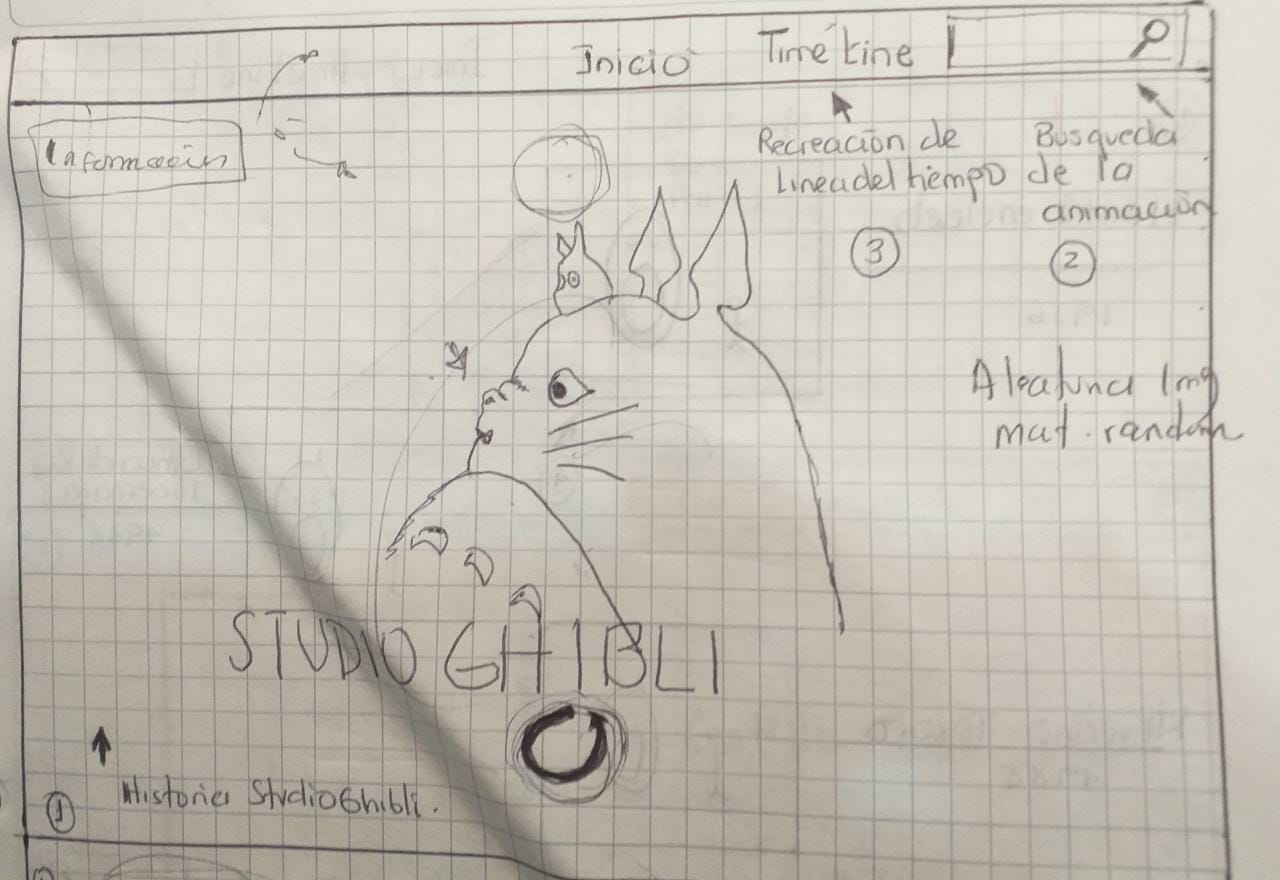 Inicio
Time Line
Información
Recreación de
Linea del tiempo
③
Busqueda
de la
animación
②
Img
mat.random
STUDIO GHIBLI
①
Historia StudioGhibli.